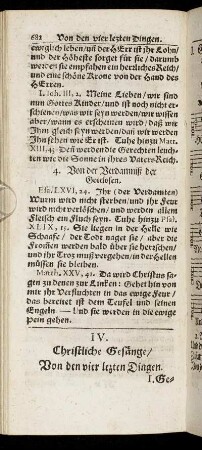 682 Von den vier lezten Dingen.
ewiglich leben/uñ der HErr ist ihr Lohn/
und der Höheste sorget für sie / darumb
werden sie empfahen ein herrliches Reich/
und eine schöne Krone von der Hand des
HErren.
1. Joh. III, 2. Meine Lieben / wir sind
nun Gottes Kinder/und ist noch nicht er-
schienen/was wir seyn werden/wir wissen
aber/wann es erscheinen wird/daß wir
Ihm gleich seyn werden/dañ wir werden
Ihn sehen wie Er ist. Tuhe hinzu Matt.
XIII, 43. Deñ werden die Gerechten leuch-
ten wie die Sonne in ihres Vaters Reich.
4. Von der Verdamnüß der
Gottlosen.
Esa. LXVI, 24. Ihr (der Verdamten)
Wurm wird nicht sterben/und ihr Feur
wird nicht verlöschen/ und werden allem
Fleisch ein Fluch seyn. Tuhe hinzu Psal.
XLIX, 15. Sie liegen in der Helle wie
Schaafe / der Tod naget sie / aber die
Frommen werden bald über sie herrschen/
und ihr Troz muß vergehen/in der Hellen
müssen sie bleiben.
Matth. XXV, 41. Da wird Christus sa-
gen zu denen zur Linken: Gehet hin von
mir ihr Verfluchten in das ewige Feur /
das bereitet ist dem Teufel und seinen
Engeln. — Und sie werden in die ewige
Pein gehen.
IV.
Christliche Gesänge/
Von den vier lezten Dingen.
I. Ge-